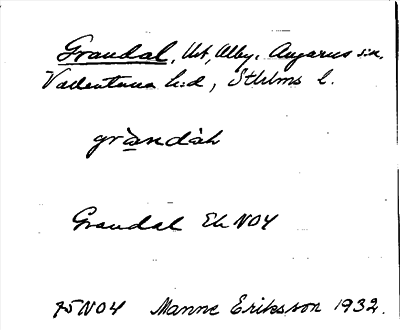 Grandal, Utt, Alby. Angarns sn,
Vallentuna h:d, Sthlms l.
gràndàh
Grandal Ek NO4
75 NO4 Manne Eriksson 1932.